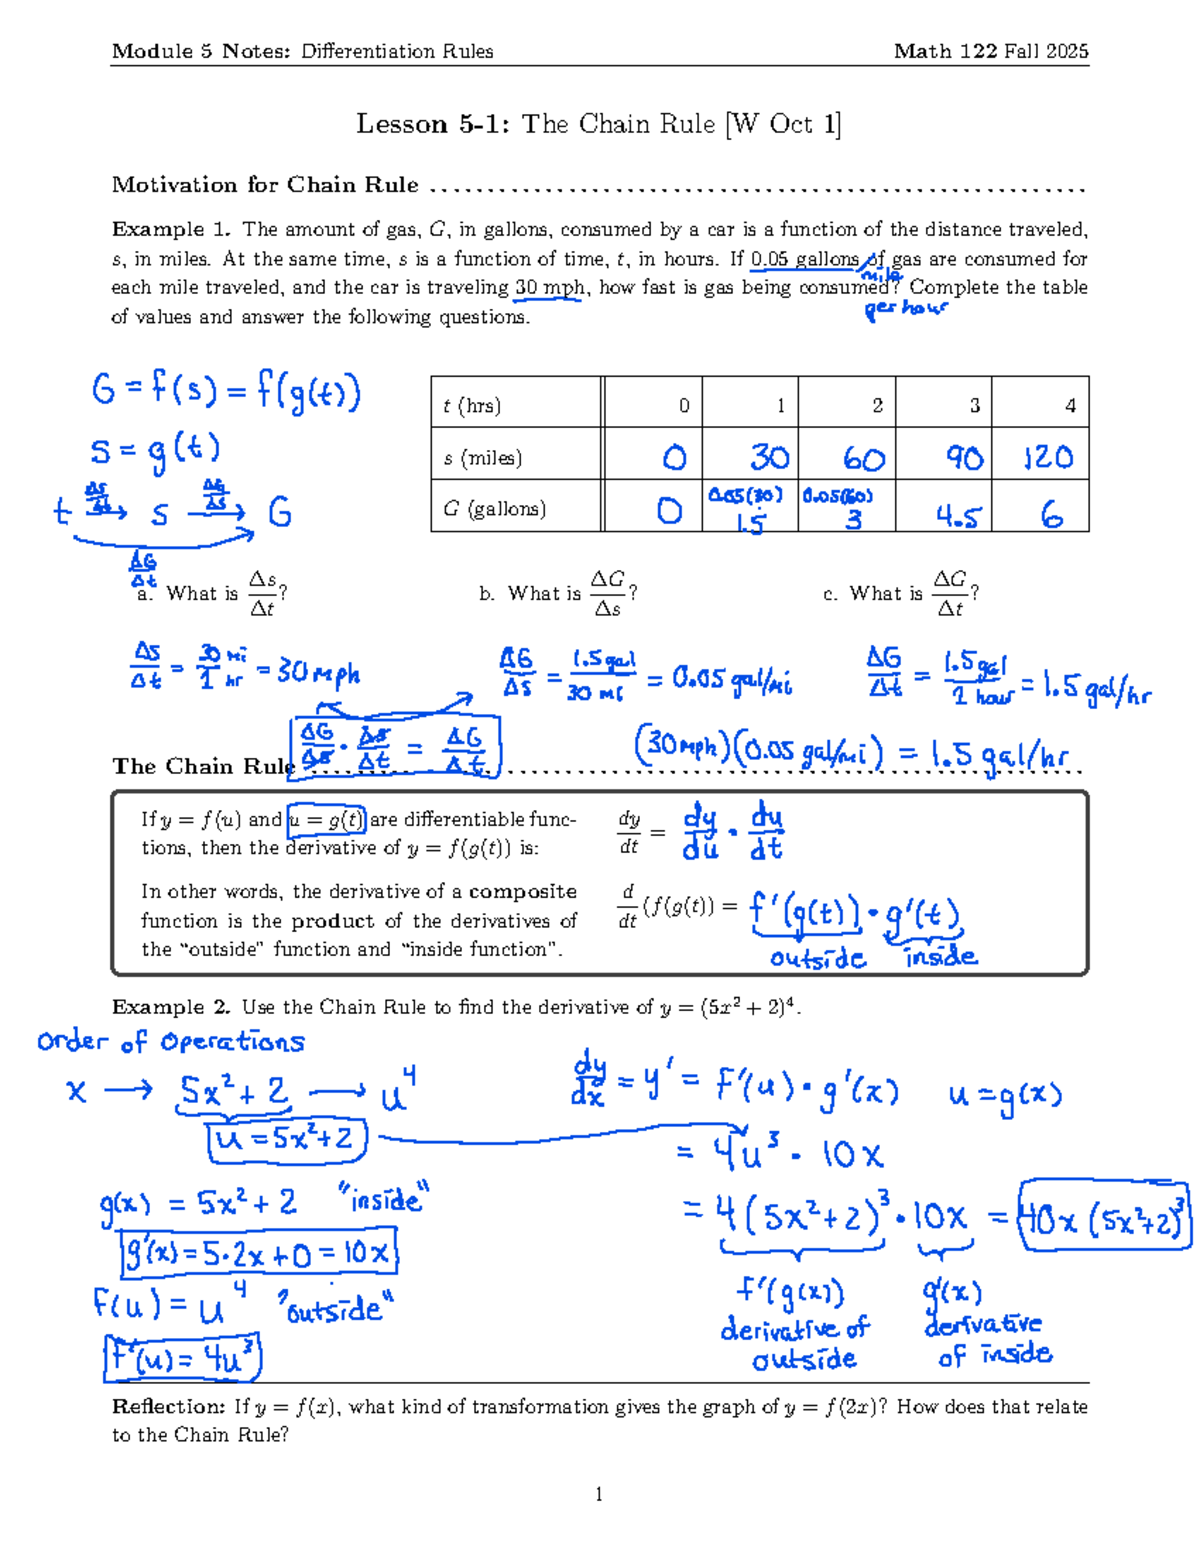 Module 5 Notes: Differentiation Rules Math 122 Fall 2025
Lesson 5-1: The Chain Rule [W Oct 1]
Motivation for Chain Rule
Example 1. The amount of gas, G, in gallons, consumed by a car is a function of the distance traveled,
s, in miles. At the same time, s is a function of time, t, in hours. If 0.05 gallons of gas are consumed for
/mile
each mile traveled, and the car is traveling 30 mph, how fast is gas being consumed? Complete the table
per hour
of values and answer the following questions.
G = f(s) = f(g(t))
s = g(t)
t Δs/Δt → s ΔG/Δs → G
ΔG/Δt
t (hrs) 0 1 2 3 4
s (miles) 0 30 60 90 120
G (gallons) 0 0.05(30) 1.5 0.05(60) 3 4.5 6
a. What is Δs/Δt? b. What is ΔG/Δs? c. What is ΔG/Δt?
Δs/Δt = 30 mi/1 hr = 30 mph
ΔG/Δs = 1.5 gal/30 mi = 0.05 gal/mi
ΔG/Δt = 1.5 gal/1 hour = 1.5 gal/hr
ΔG/Δs · Δs/Δt = ΔG/Δt
(30 mph)(0.05 gal/mi) = 1.5 gal/hr
The Chain Rule
If y = f(u) and u = g(t) are differentiable func-
tions, then the derivative of y = f(g(t)) is:
dy/dt = dy/du · du/dt
In other words, the derivative of a composite
function is the product of the derivatives of
the “outside” function and “inside function”.
d/dt (f(g(t)) = f'(g(t)) · g'(t)
outside inside
Example 2. Use the Chain Rule to find the derivative of y = (5x² + 2)⁴.
Order of Operations
x → 5x² + 2 → u⁴
u = 5x²+2
g(x) = 5x² + 2 "inside"
g'(x) = 5·2x + 0 = 10x
f(u) = u⁴ "outside"
f'(u) = 4u³
dy/dx = y' = f'(u) · g'(x) u = g(x)
= 4u³ · 10x
= 4(5x²+2)³ · 10x = 40x (5x²+2)³
f'(g(x)) g'(x)
derivative of derivative
outside of inside
Reflection: If y = f(x), what kind of transformation gives the graph of y = f(2x)? How does that relate
to the Chain Rule?
1